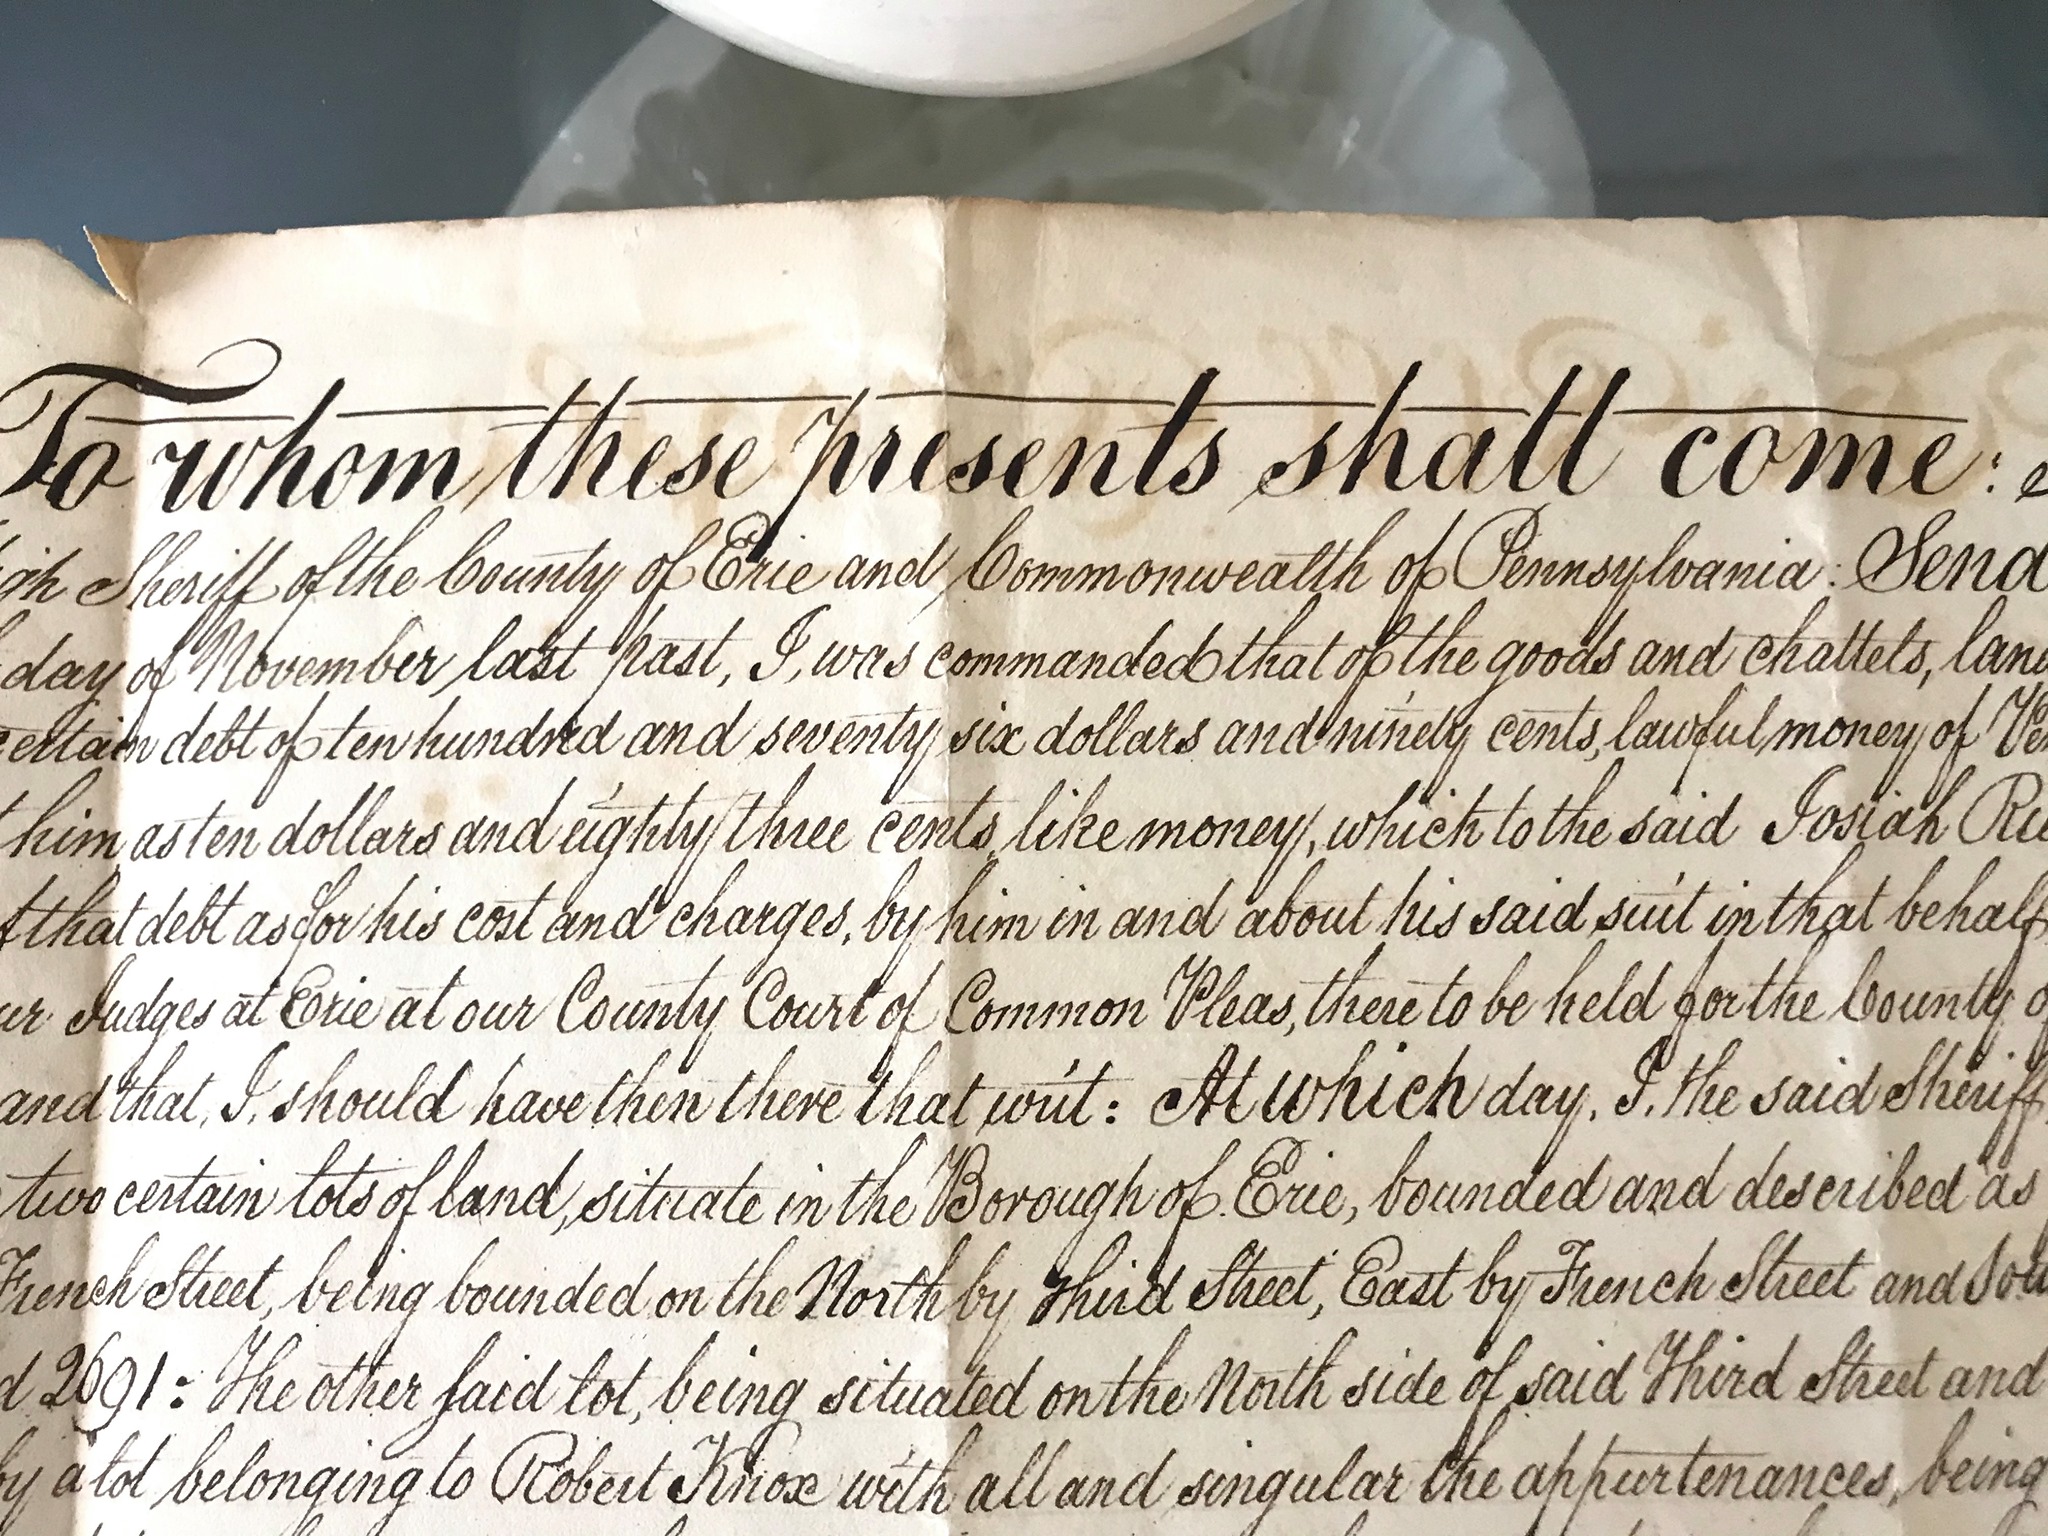 To whom these presents shall come:
igh Sheriff of the County of Erie and Commonwealth of Pennsylvania: Send
day of November last past, I, was commanded that of the goods and chattels, lan
certain debt of ten hundred and seventy six dollars and ninety cents, lawful money of Pe
t him as ten dollars and eighty three cents, like money, which to the said Josiah
f that debt as for his cost and charges, by him in and about his said suit in that behalf
ur Judges at Erie at our County Court of Common Pleas, there to be held for the County of
and that, I, should have then there that writ: At which day, I, the said Sheriff,
two certain lots of land, situate in the Borough of Erie, bounded and described as
French Street, being bounded on the North by Third Street, East by French Street and Sou
d 2691: The other said lot, being situated on the North side of said Third Street and
by a lot belonging to Robert Knox with all and singular the appurtenances, being